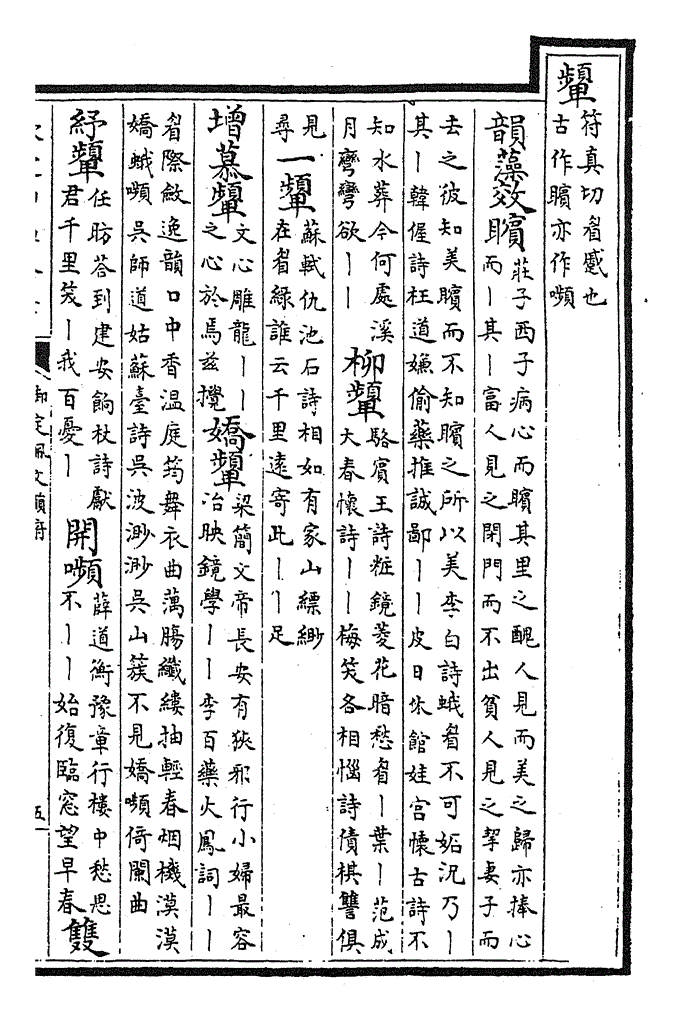 顰符真切眉蹙也
古作矉亦作嚬
韻藻效矉莊子西子病心而矉其里之醜人見而美之歸亦捧心
而丨其丨富人見之閉門而不出貧人見之挈妻子而
去之彼知美矉而不知矉之所以美李白詩蛾眉不可妬況乃丨
其丨韓偓詩枉道嫌偷藥推誠鄙丨丨皮日休館娃宫懷古詩不
知水葬今何處溪
月彎彎欲丨丨
柳顰駱賓王詩粧鏡菱花暗愁眉丨葉丨范成
大春懷詩丨丨梅笑各相惱詩債棋讐俱
見
尋
一顰蘇軾仇池石詩相如有家山縹緲
在眉緑誰云千里遠寄此丨丨足
增慕顰文心雕龍丨丨
之心於焉兹攪
嬌顰梁簡文帝長安有狹邪行小婦最容
冶映鏡學丨丨李百藥火鳳詞丨丨
眉際斂逸韻口中香温庭筠舞衣曲藕腸纖縷抽輕春烟機漠漠
嬌蛾嚬吳師道姑蘇臺詩吳波渺渺吳山簇不見嬌嚬倚闌曲
紓顰任昉答到建安餉杖詩獻
君千里笑丨我百憂丨
開嚬薛道衡豫章行樓中愁思
不丨丨始復臨窓望早春
雙
御定佩文韻府
五